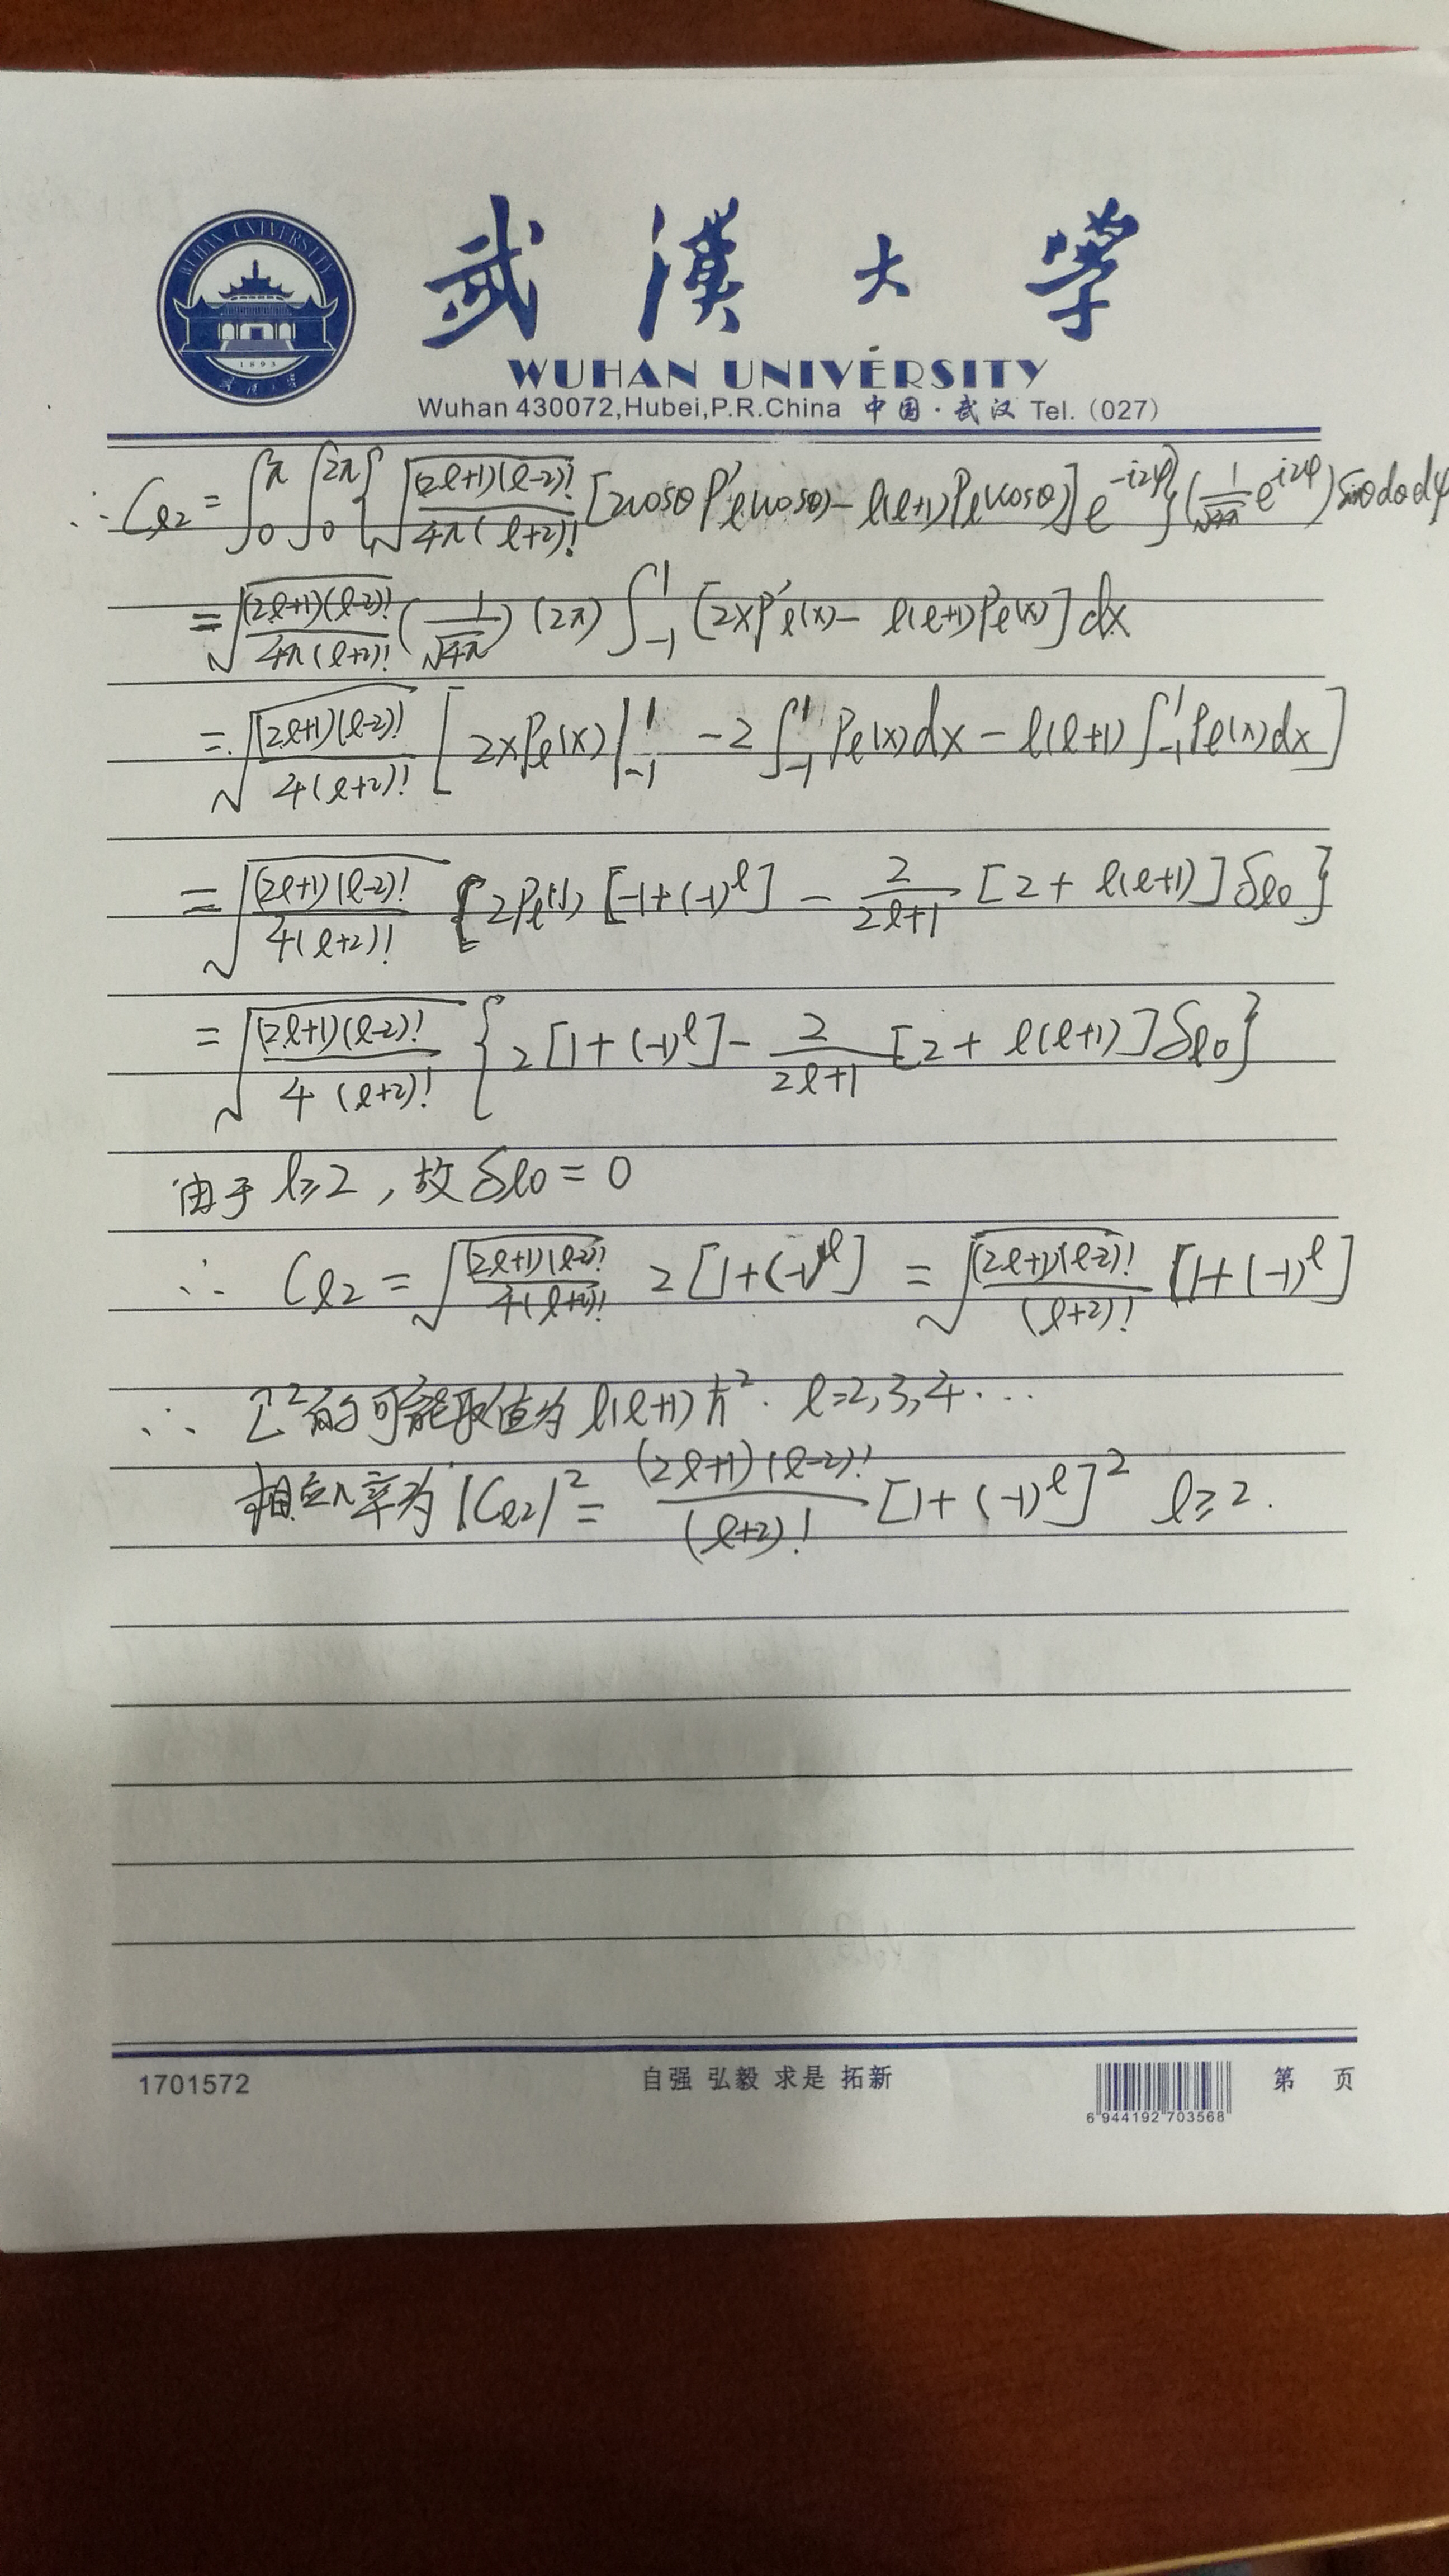 WUHAN UNIVERSITY
1893
武汉大学
武漢大学
WUHAN UNIVERSITY
Wuhan 430072,Hubei,P.R.China 中国·武汉 Tel.(027)
∴ Cℓ2 = ∫₀^π ∫₀^2π {√((2ℓ+1)(ℓ-2)!/4π(ℓ+2)!) [2cosθ P'ℓ(cosθ) - ℓ(ℓ+1)Pℓ(cosθ)] e^(-i2φ)} (1/√4π e^(i2φ)) sinθ dθ dφ
= √((2ℓ+1)(ℓ-2)!/4π(ℓ+2)!) (1/√4π) (2π) ∫₋₁^1 [2xP'ℓ(x) - ℓ(ℓ+1)Pℓ(x)] dx
= √((2ℓ+1)(ℓ-2)!/4(ℓ+2)!) [2xPℓ(x)|₋₁^1 - 2∫₋₁^1 Pℓ(x)dx - ℓ(ℓ+1)∫₋₁^1 Pℓ(x)dx]
= √((2ℓ+1)(ℓ-2)!/4(ℓ+2)!) {2Pℓ(1) [-1+(-1)^ℓ] - 2/(2ℓ+1) [2+ℓ(ℓ+1)] δℓ0}
= √((2ℓ+1)(ℓ-2)!/4(ℓ+2)!) {2[1+(-1)^ℓ] - 2/(2ℓ+1) [2+ℓ(ℓ+1)] δℓ0}
由于 ℓ≥2, 故 δℓ0 = 0
∴ Cℓ2 = √((2ℓ+1)(ℓ-2)!/4(ℓ+2)!) 2[1+(-1)^ℓ] = √((2ℓ+1)(ℓ-2)!/(ℓ+2)!) [1+(-1)^ℓ]
∴ L̂² 的可能取值为 ℓ(ℓ+1)ħ². ℓ=2,3,4...
相应几率为 |Cℓ2|² = (2ℓ+1)(ℓ-2)!/(ℓ+2)! [1+(-1)^ℓ]² ℓ≥2.
1701572 自强 弘毅 求是 拓新 6 944192 703568 第 页